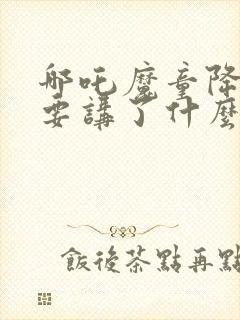 哪吒魔童降
要講了什麼
飯後茶點再點